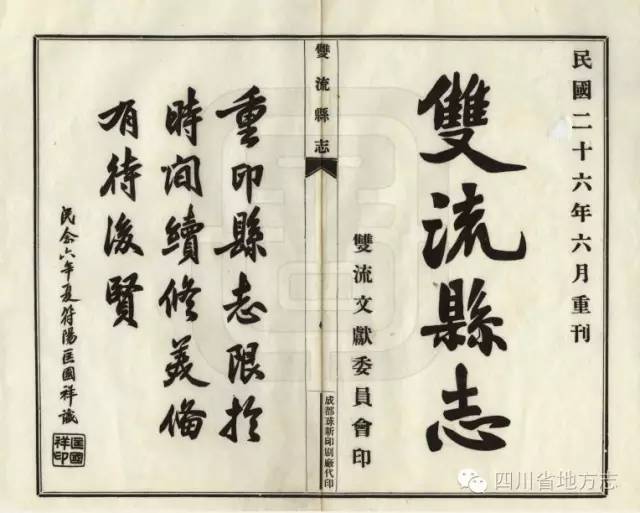 民國二十六年六月重刊
雙流縣志
雙流文獻委員會印
雙流縣志
成都球新印刷廠代印
重印縣志限於
時间續修美俻
有待後賢
民念六年夏符陽匡國祥識
匡國
祥印
四川省地方志